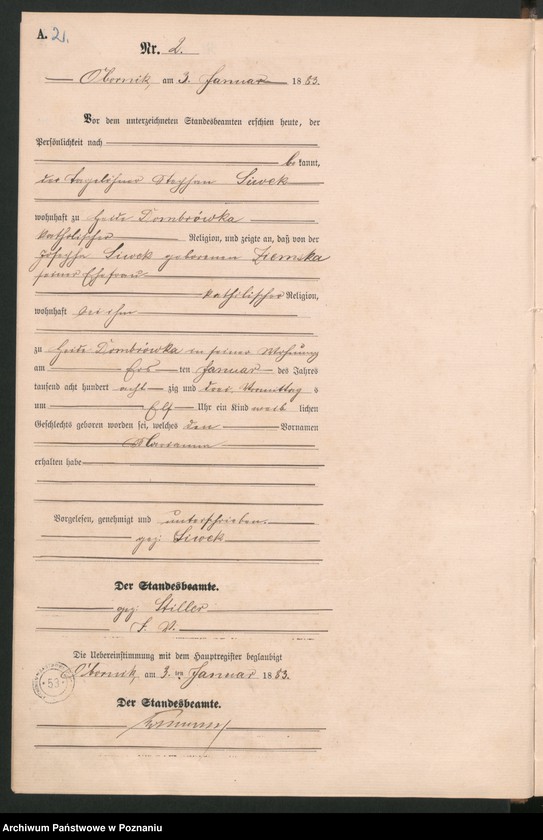 A. 21.
Nr. 2.
Obornik, am 3. Januar 1883.
Vor dem unterzeichneten Standesbeamten erschien heute, der
Persönlichkeit nach
bekannt,
der Tagelöhner Stephan Siwek
wohnhaft zu Heide Dombrówka
katholischer Religion, und zeigte an, daß von der
Josepha Siwek geborenen Ziemska
seiner Ehefrau
katholischer Religion,
wohnhaft bei ihm
zu Heide Dombrówka in seiner Wohnung
am Ers ten Januar des Jahres
tausend acht hundert acht zig und drei Vormittag s
um Elf Uhr ein Kind weib lichen
Geschlechts geboren worden sei, welches den Vornamen
Marianna
erhalten habe
Vorgelesen, genehmigt und unterschrieben.
gez. Siwek
Der Standesbeamte.
gez. Stiller
J. V.
Die Uebereinstimmung mit dem Hauptregister beglaubigt
Obornik, am 3. ten Januar 1883.
53
Der Standesbeamte.
Archiwum Państwowe w Poznaniu